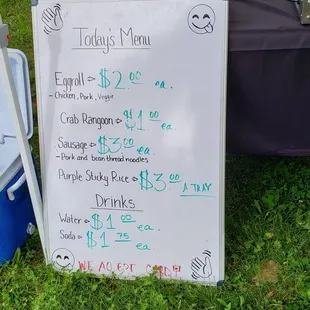 Today's Menu
Eggroll $2.00 ea.
- Chicken, Pork, Veggie
Crab Rangoon $1.00 ea.
Sausage $3.00 ea.
- Pork and bean thread noodles
Purple Sticky Rice $3.00 A TRAY
Drinks
Water $1.00 ea.
Soda $1.75 ea.
WE